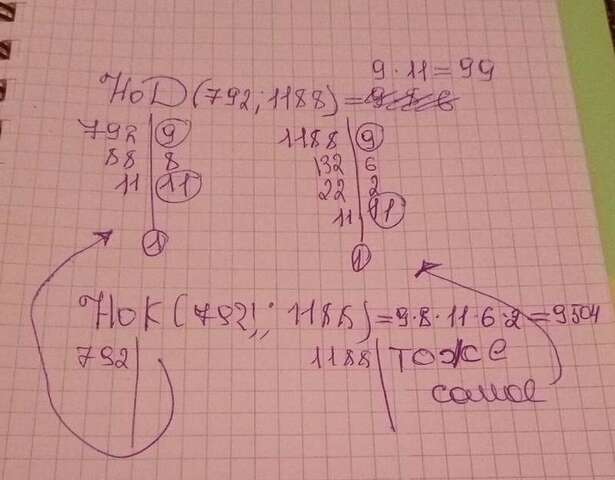 9 · 11 = 99
НОД (792; 1188) =
792 | 9
88 | 8
11 | 11
1
1188 | 9
132 | 6
22 | 2
11 | 11
1
НОК (792; 1188) = 9 · 8 · 11 · 6 · 2 = 9504
792 |
1188 | тоже
самое